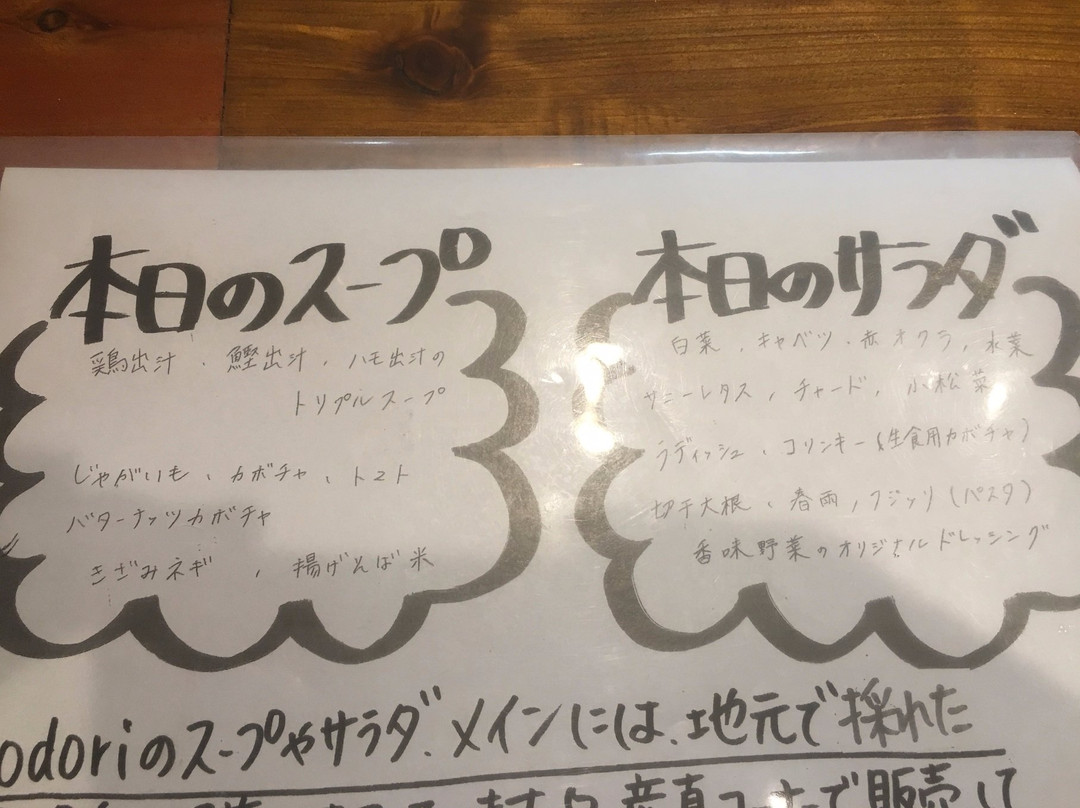 本日のスープ
鶏出汁、鰹出汁、ハモ出汁の
トリプルスープ
じゃがいも、カボチャ、トマト
バターナッツカボチャ
きざみネギ、揚げそば米
本日のサラダ
白菜、キャベツ、赤オクラ、水菜
サニーレタス、チャード、小松菜
ラディッシュ、コリンキー(生食用カボチャ)
切干大根、春雨、フジッリ(パスタ)
香味野菜のオリジナルドレッシング
odoriのスープやサラダ、メインには、地元で採れた
産直コーナーで販売して